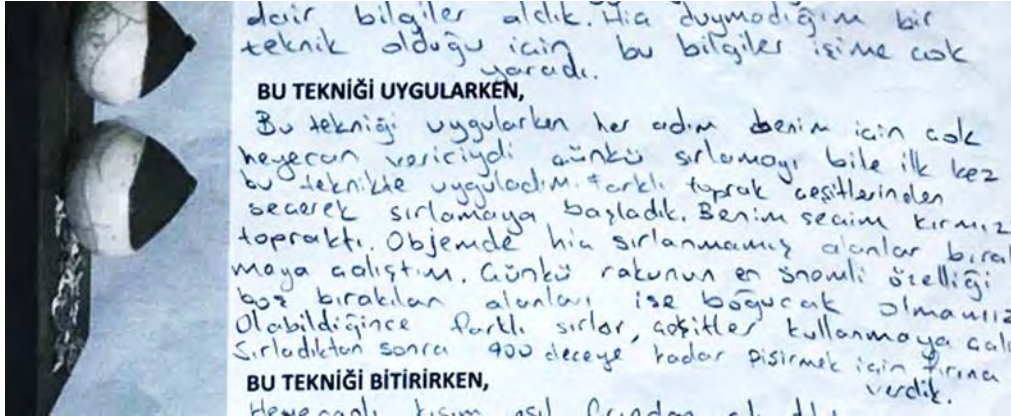 dair bilgiler aldık. Hiç duymadığım bir
teknik olduğu için bu bilgiler işime çok
yaradı.
BU TEKNİĞİ UYGULARKEN,
Bu tekniği uygularken her adım benim için çok
heyecan vericiydi çünkü sırlamayı bile ilk kez
bu teknikte uyguladım. Farklı toprak çeşitlerinden
seçerek sırlamaya başladık. Benim seçim kırmız
topraktı. Objemde hiç sırlanmamış alanlar bırak
maya çalıştım. Çünkü rakunun en önemli özelliği
boş bırakılan alanları ise boğucak olmamız
Olabildiğince farklı sırlar, çeşitler kullanmaya çalı
Sırladıktan sonra 900 dereceye kadar pişirmek için fırına
verdik.
BU TEKNİĞİ BİTİRİRKEN,
Heyecanlı kısım asıl fırından